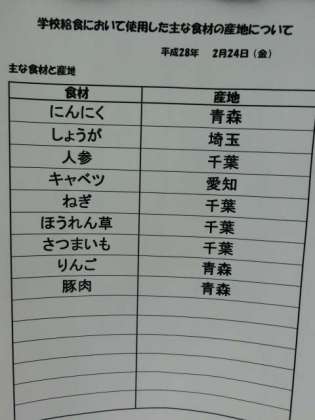 学校給食において使用した主な食材の産地について
平成28年 2月24日（金）
主な食材と産地
食材 産地
にんにく 青森
しょうが 埼玉
人参 千葉
キャベツ 愛知
ねぎ 千葉
ほうれん草 千葉
さつまいも 千葉
りんご 青森
豚肉 青森